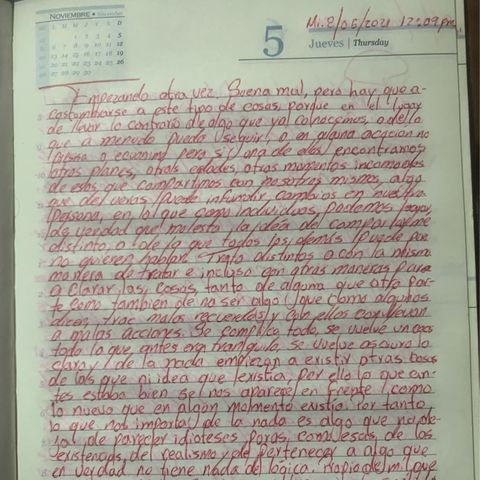 NOVIEMBRE • November
Mi. 2/06/2021 12:09 pm.
5
Jueves | Thursday
Empezando otra vez. Suena mal, pero hay que a-
costumbrarse a este tipo de cosas, porque en el lugar
de llevar lo contrario de algo que ya conocemos, o de lo
que a menudo pueda seguir, o en alguna ocasión no
pero si una de ellas encontramos
otros planes, otras edades, otros momentos incomodos
de esos, que compartimos con nosotros mismos, algo
que de veras puede infundir cambios en nuestra
persona, en lo que como individuos, podemos
de verdad que molesta la idea de comportarme
distinto, o de lo que todos los demás puede que
no quieren hablar. Trato distintos o con la misma
manera de tratar e incluso con otras maneras para
aclarar las cosas, tanto de alguna que otra par-
te como tambien de no ser algo que como algunos
dicen, trae malos recuerdos y con ellos conllevan
a malas acciones. Se complica todo, se vuelve un caos
todo lo que antes era tranquilo, se vuelve oscuro lo
claro y de la nada empiezan a existir otras cosas
de las que ni idea que existia, por ello lo que an-
tes estaba bien se nos aparece en frente como
lo nuevo que en algún momento existio. Por tanto
lo que nos importa de la nada es algo que no de-
ja de parecer idioteses
existencias, del realismo y de pertenecer a algo que
en verdad no tiene nada de logica. Propia de mil que